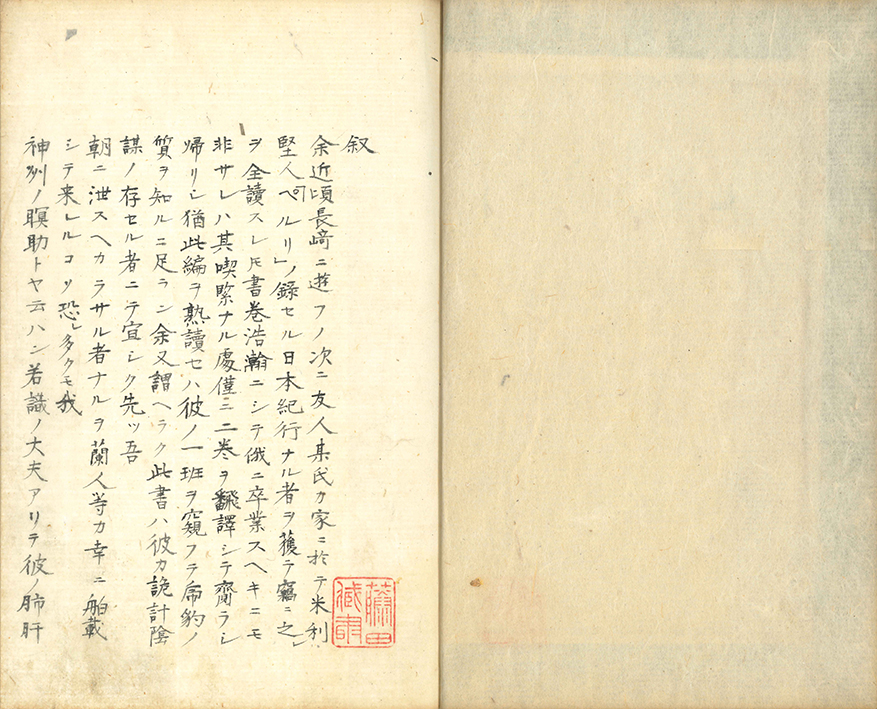 叙
余近頃長﨑ニ遊フノ次ニ友人某氏カ家ニ於テ米利
堅人「ペルリ」ノ録セル日本紀行ナル者ヲ獲テ竊ニ之レ
ヲ全讀スレ𪜈書巻浩瀚ニシテ俄ニ卒業スヘキニモ
非サレハ其喫緊ナル處僅ニ二巻ヲ飜譯シテ齎ラシ
帰リシ猶此編ヲ熟讀セハ彼ノ一班ヲ窺フテ虎豹ノ
質ヲ知ルニ足ラン余又謂ヘラク此書ハ彼カ詭計陰
謀ノ存セル者ニテ宜シク先ツ吾
朝ニ泄スヘカラサル者ナルヲ蘭人等カ幸ニ舶載
シテ来レルコソ恐レ多クモ我
神州ノ瞑助トヤ云ハン若識ノ大夫アリテ彼ノ肺肝
藤田
蔵書